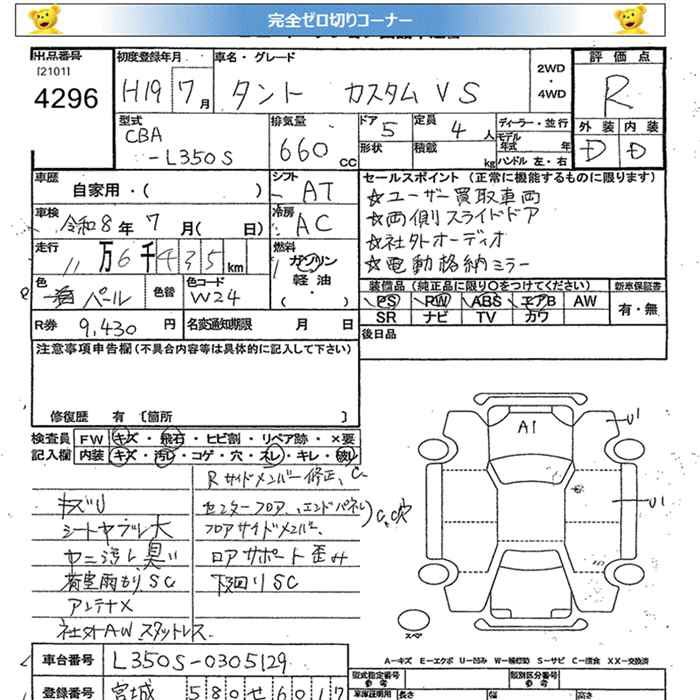 完全ゼロ切りコーナー
出品番号 初度登録年月 車名・グレード 2WD・4WD 評価点
[2101] 4296 H19 7月 タント カスタム VS R
型式 排気量 ドア 5 定員 4人 ディーラー・並行 外装 内装
CBA-L350S 660cc 形状 積載 kg モデル年式 年 D D
ハンドル 左・右
車歴 自家用・( ) シフト AT セールスポイント (正常に機能するものに限ります)
車検 令和8年7月( 日) 冷房 AC ☆ユーザー買取車両
☆両側スライドドア
走行 11万6千435km 燃料 ガソリン 軽油・( ) ☆社外オーディオ
☆電動格納ミラー
色 パール 色替 色コード W24 装備品 (純正品に限り○をつけてください) 新車保証書
PS PW ABS エアB AW 有・無
R券 9,430円 名変通知期限 月 日 SR ナビ TV カワ
注意事項申告欄(不具合内容等は具体的に記入して下さい) 後日品
修復歴 有 [箇所 ]
検査員 FW キズ・飛石・ヒビ割・リペア跡・×要
記入欄 内装 キズ・汚レ・コゲ・穴・スレ・キレ・破レ
Rサイドメンバー修正、C
キズU センターフロア、エンドパネル) C,C穴
シートヤブレ大 フロアサイドメンバー
ヤニ汚レ臭い ロアサポート歪み
荷室雨もりSC 下回りSC
アンテナ×
社外AWスタットレス
A1
U1
U1
スペア
車台番号 L350S-0305129 A-キズ E-エクボ U-凹み W-補修跡 S-サビ C-腐食 XX-交換済
型式指定番号 参考 類別区分番号 参考
登録番号 宮城 580せ6017 車庫証明用 長さ 幅 高さ